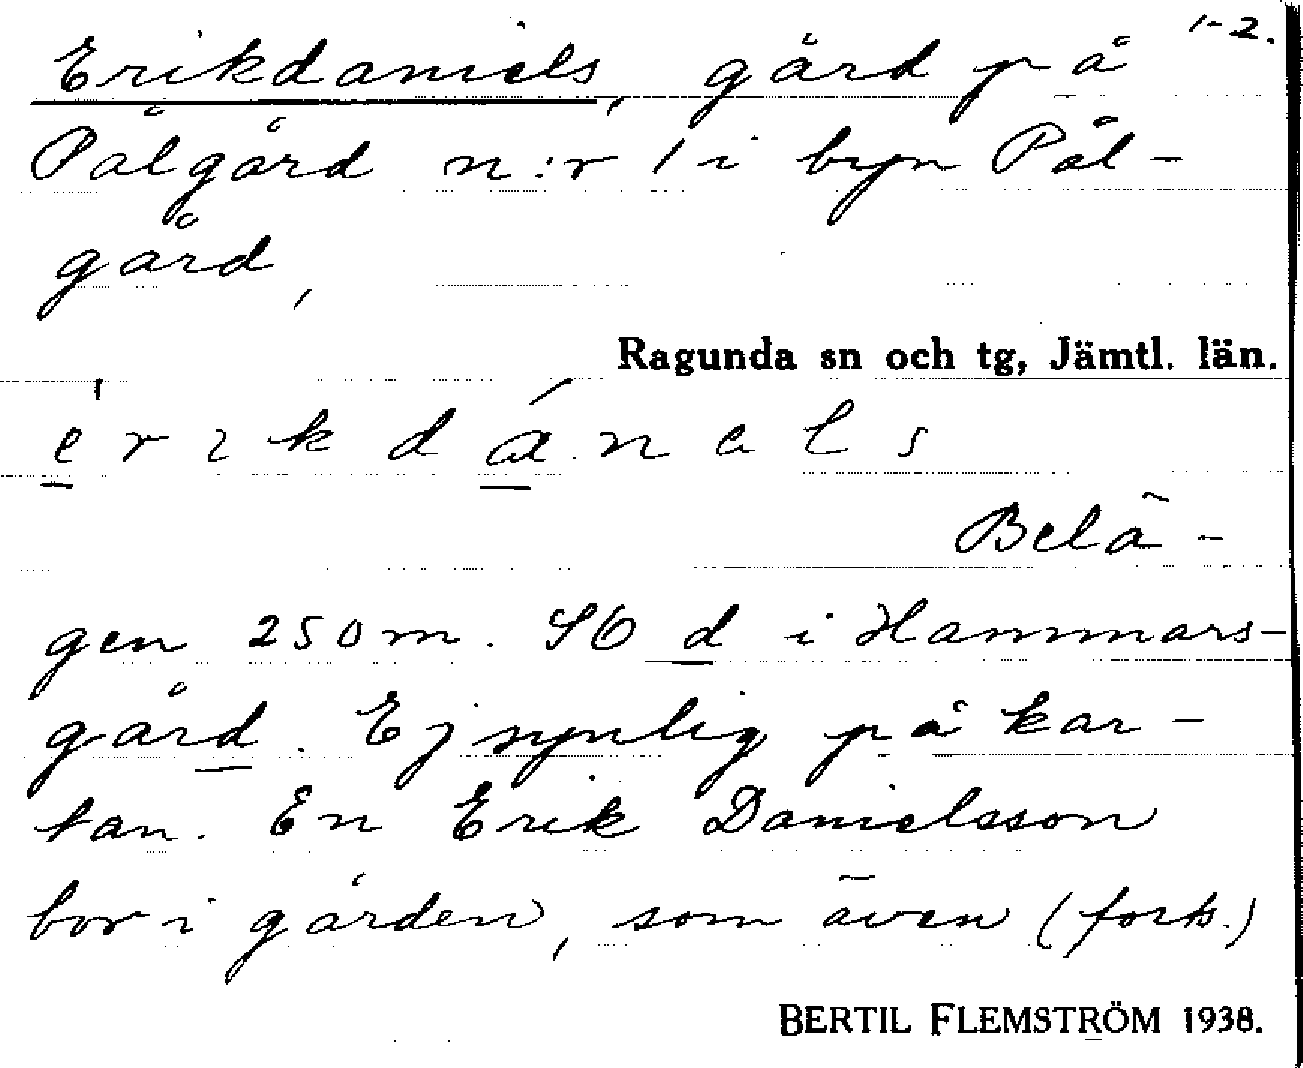 1-2.
Erikdaniels, gård på
Pålgård n:r 1 i byn Pål-
gård,
Ragunda sn och tg, Jämtl. län.
érikdánals
Belä-
gen 250 m. SO d i Hammars-
gård. Ej synlig på kar-
tan. En Erik Danielsson
bor i gården, som även (forts.)
BERTIL FLEMSTRÖM 1938.